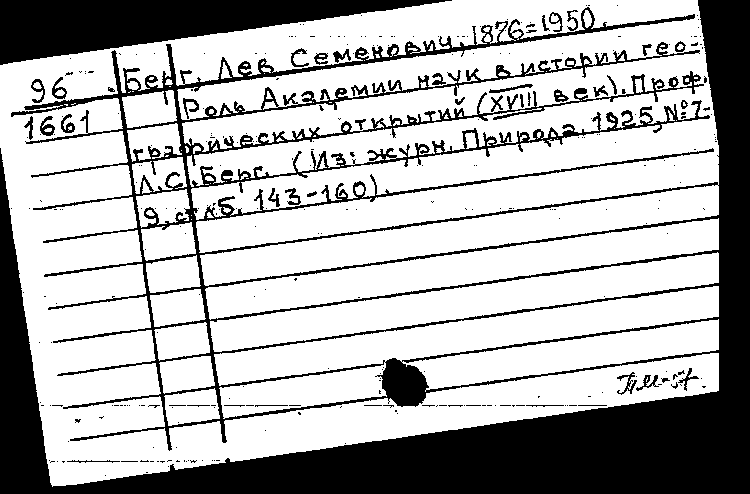 96
1661
Берг, Лев Семенович, 1876=1950.
Роль Академии наук в истории гео-
графических открытий (XVIII век). Проф.
Л.С. Берг. (Из: журн. Природа. 1925, №7-
9, стлб. 143-160).